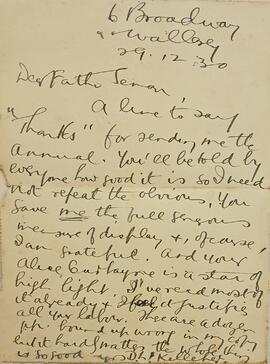 6 Broadway
Wallsey
29.12.30
Dear Father Senan,
A line to say
"Thanks" for sending me the
Annual. You'll be told by
everyone how good it is so I need
not repeat the obvious, You
gave me the full
measure of display &, of course,
I am grateful. And your
Alice Curtayne is a star of
high light. I've read most of
it already & I justifies
all your labor. There are a dozen
pp. bound up wrong in my copy
but it hardly matter the whole
is so good